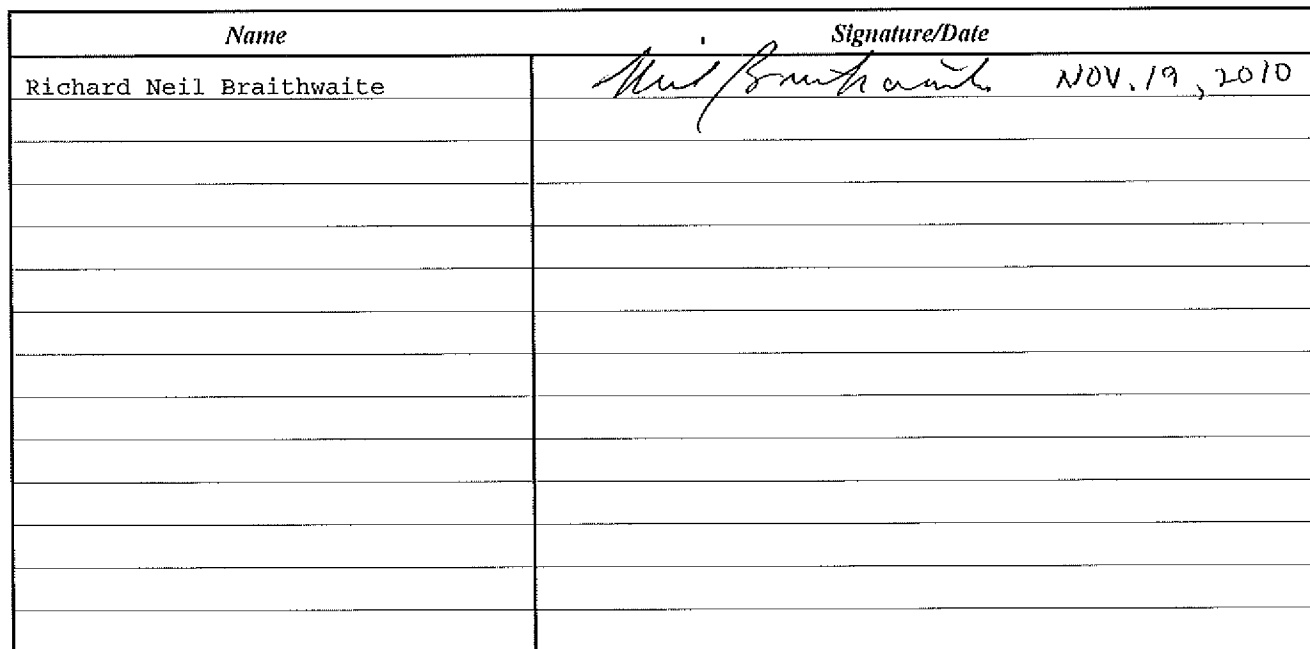 Name Signature/Date
Richard Neil Braithwaite Neil Braithwaite NOV. 19, 2010